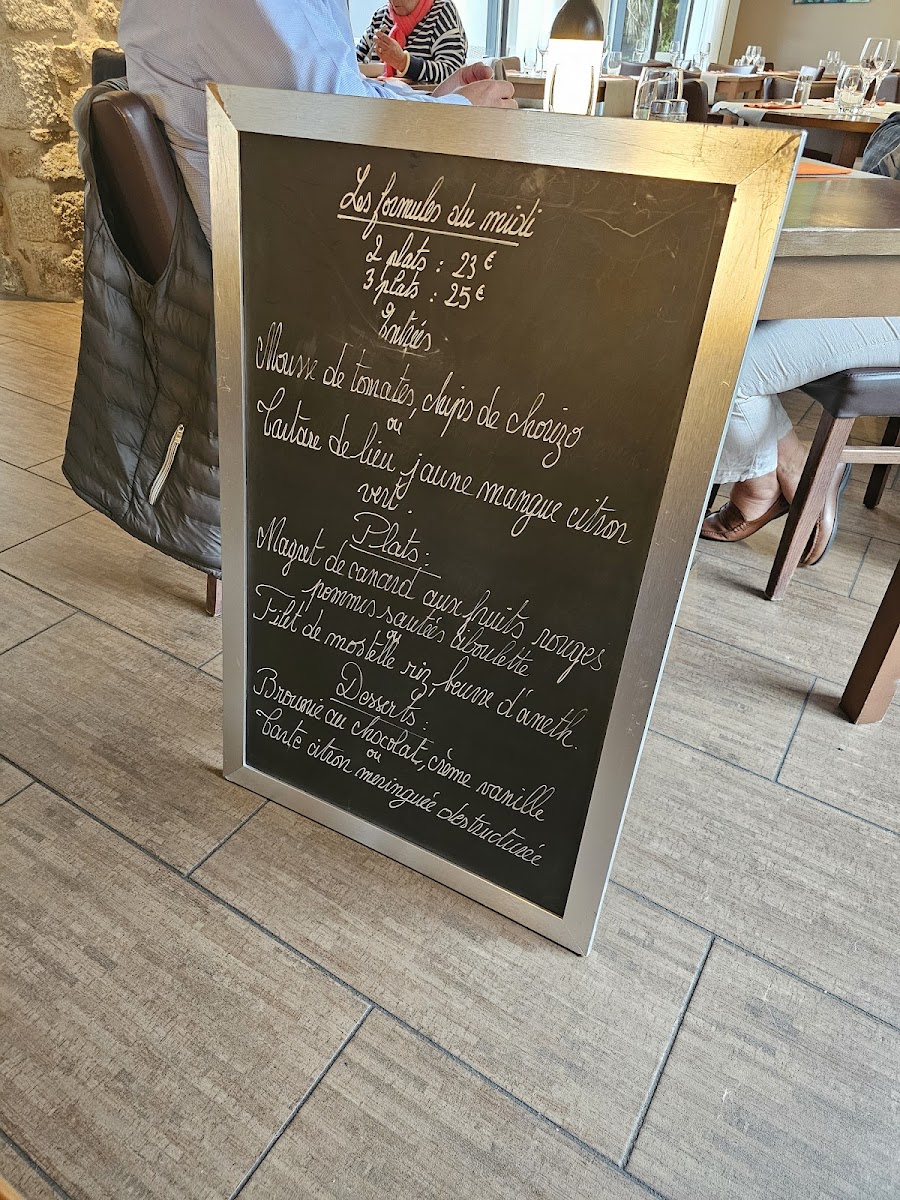 Les formules du midi
2 plats : 23 €
3 plats : 25 €
Entrées
Mousse de tomates, chips de chorizo
ou
Tartare de lieu jaune mangue citron
vert.
Plats :
Magret de canard aux fruits rouges
pommes sautées ciboulette
ou
Filet de mostelle riz, beurre d'aneth.
Desserts :
Brownie au chocolat, crème vanille
ou
Tarte citron meringuée destructurée